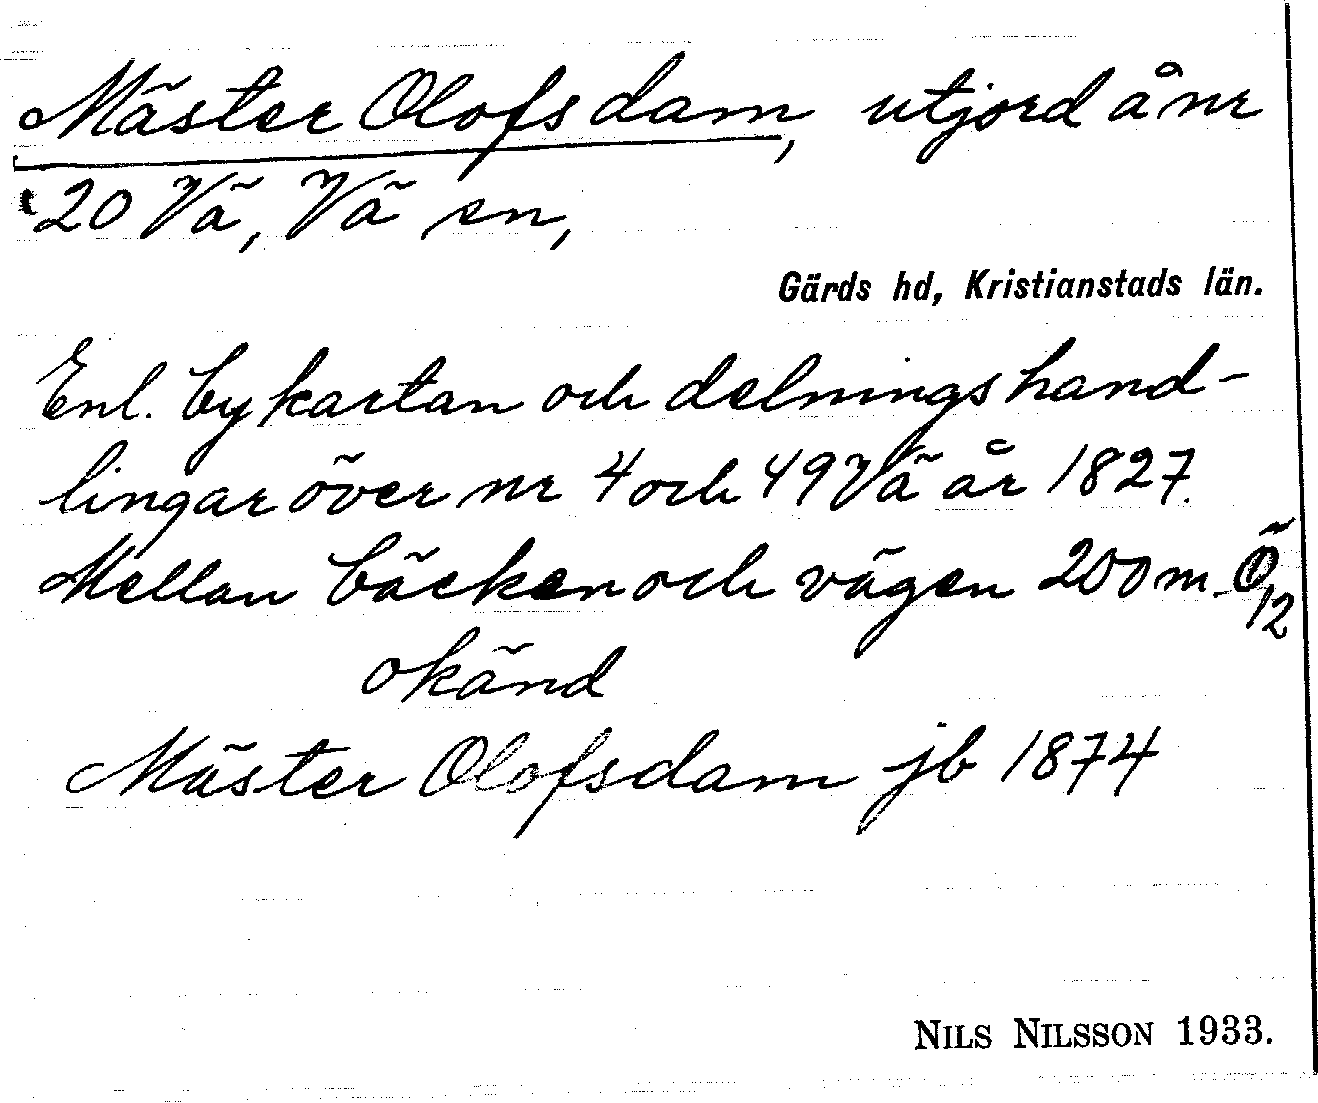 Mäster Olofsdam, utjord å nr
20 Vä, Vä sn,
Gärds hd, Kristianstads län.
Enl. bykartan och delningshand-
lingar över nr 4 och 49 Vä år 1827.
Mellan bäcken och vägen 200 m. Ö
12
okänd
Mäster Olofsdam jb 1874
NILS NILSSON 1933.